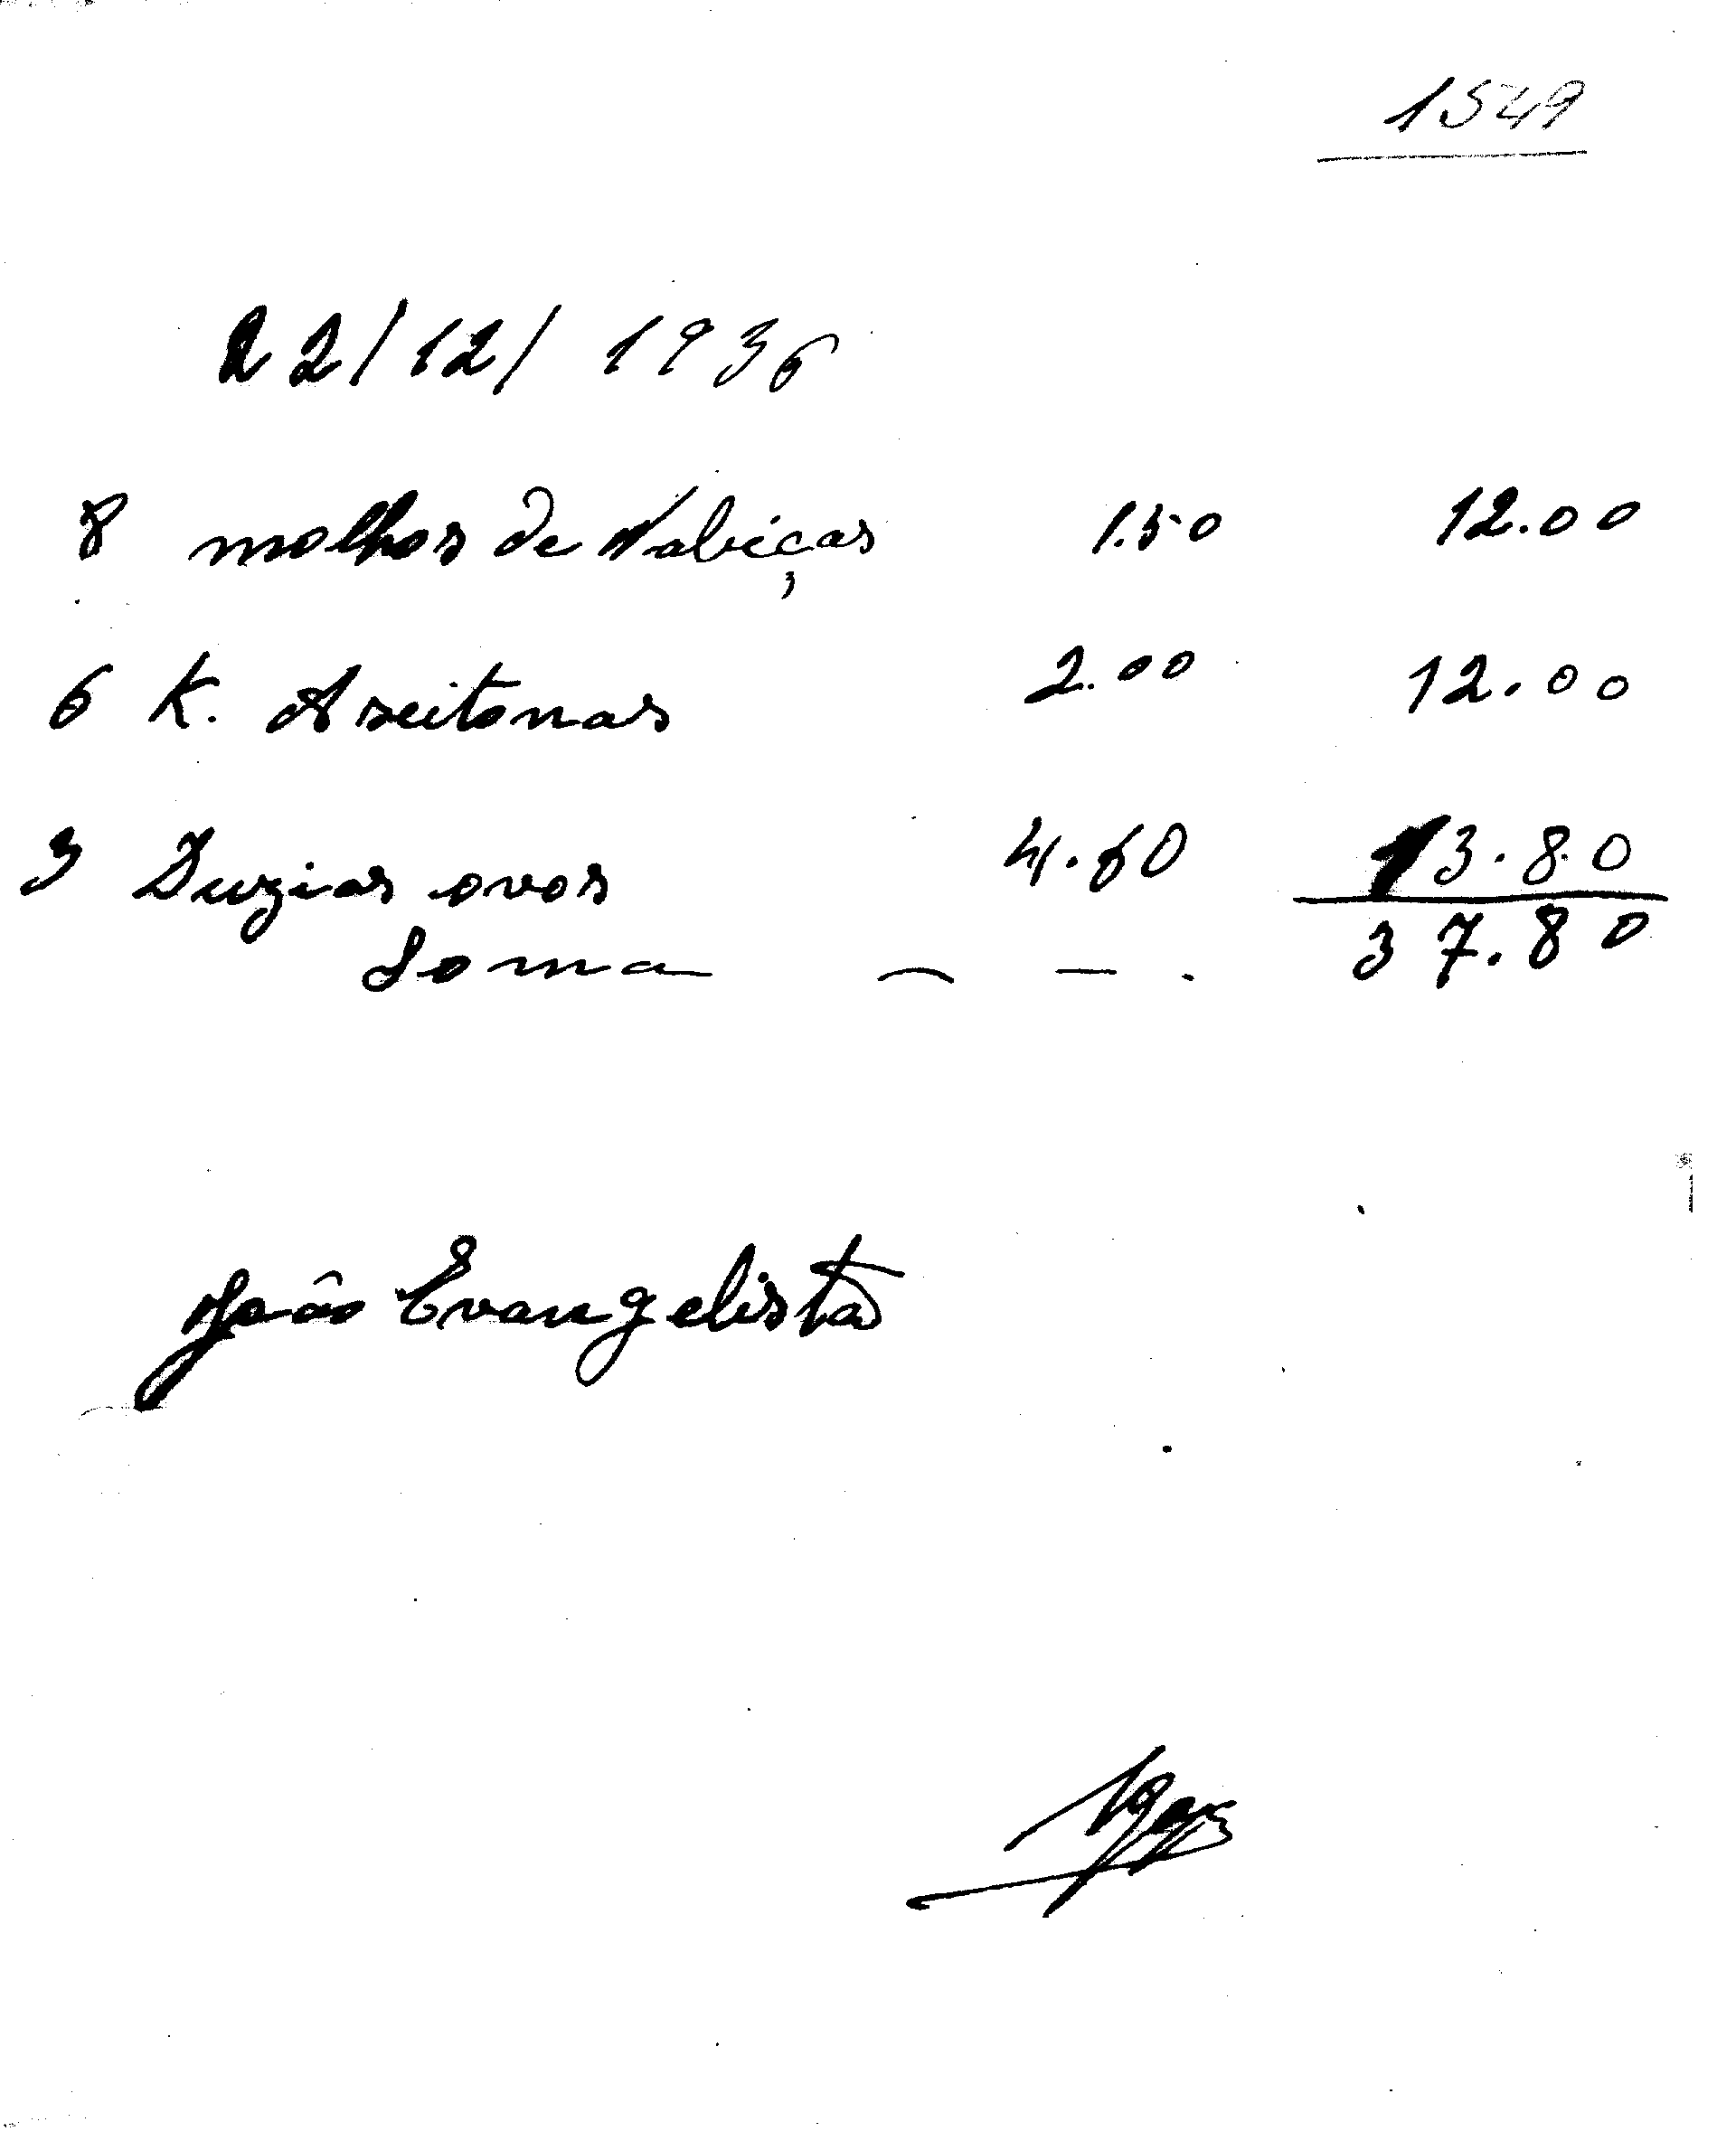 1549
22/12/1936
8 molhos de Nabiças 1.50 12.00
6 K. Azeitonas 2.00 12.00
3 Duzias ovos 4.60 13.80
Soma — — . 37.80
João Evangelista